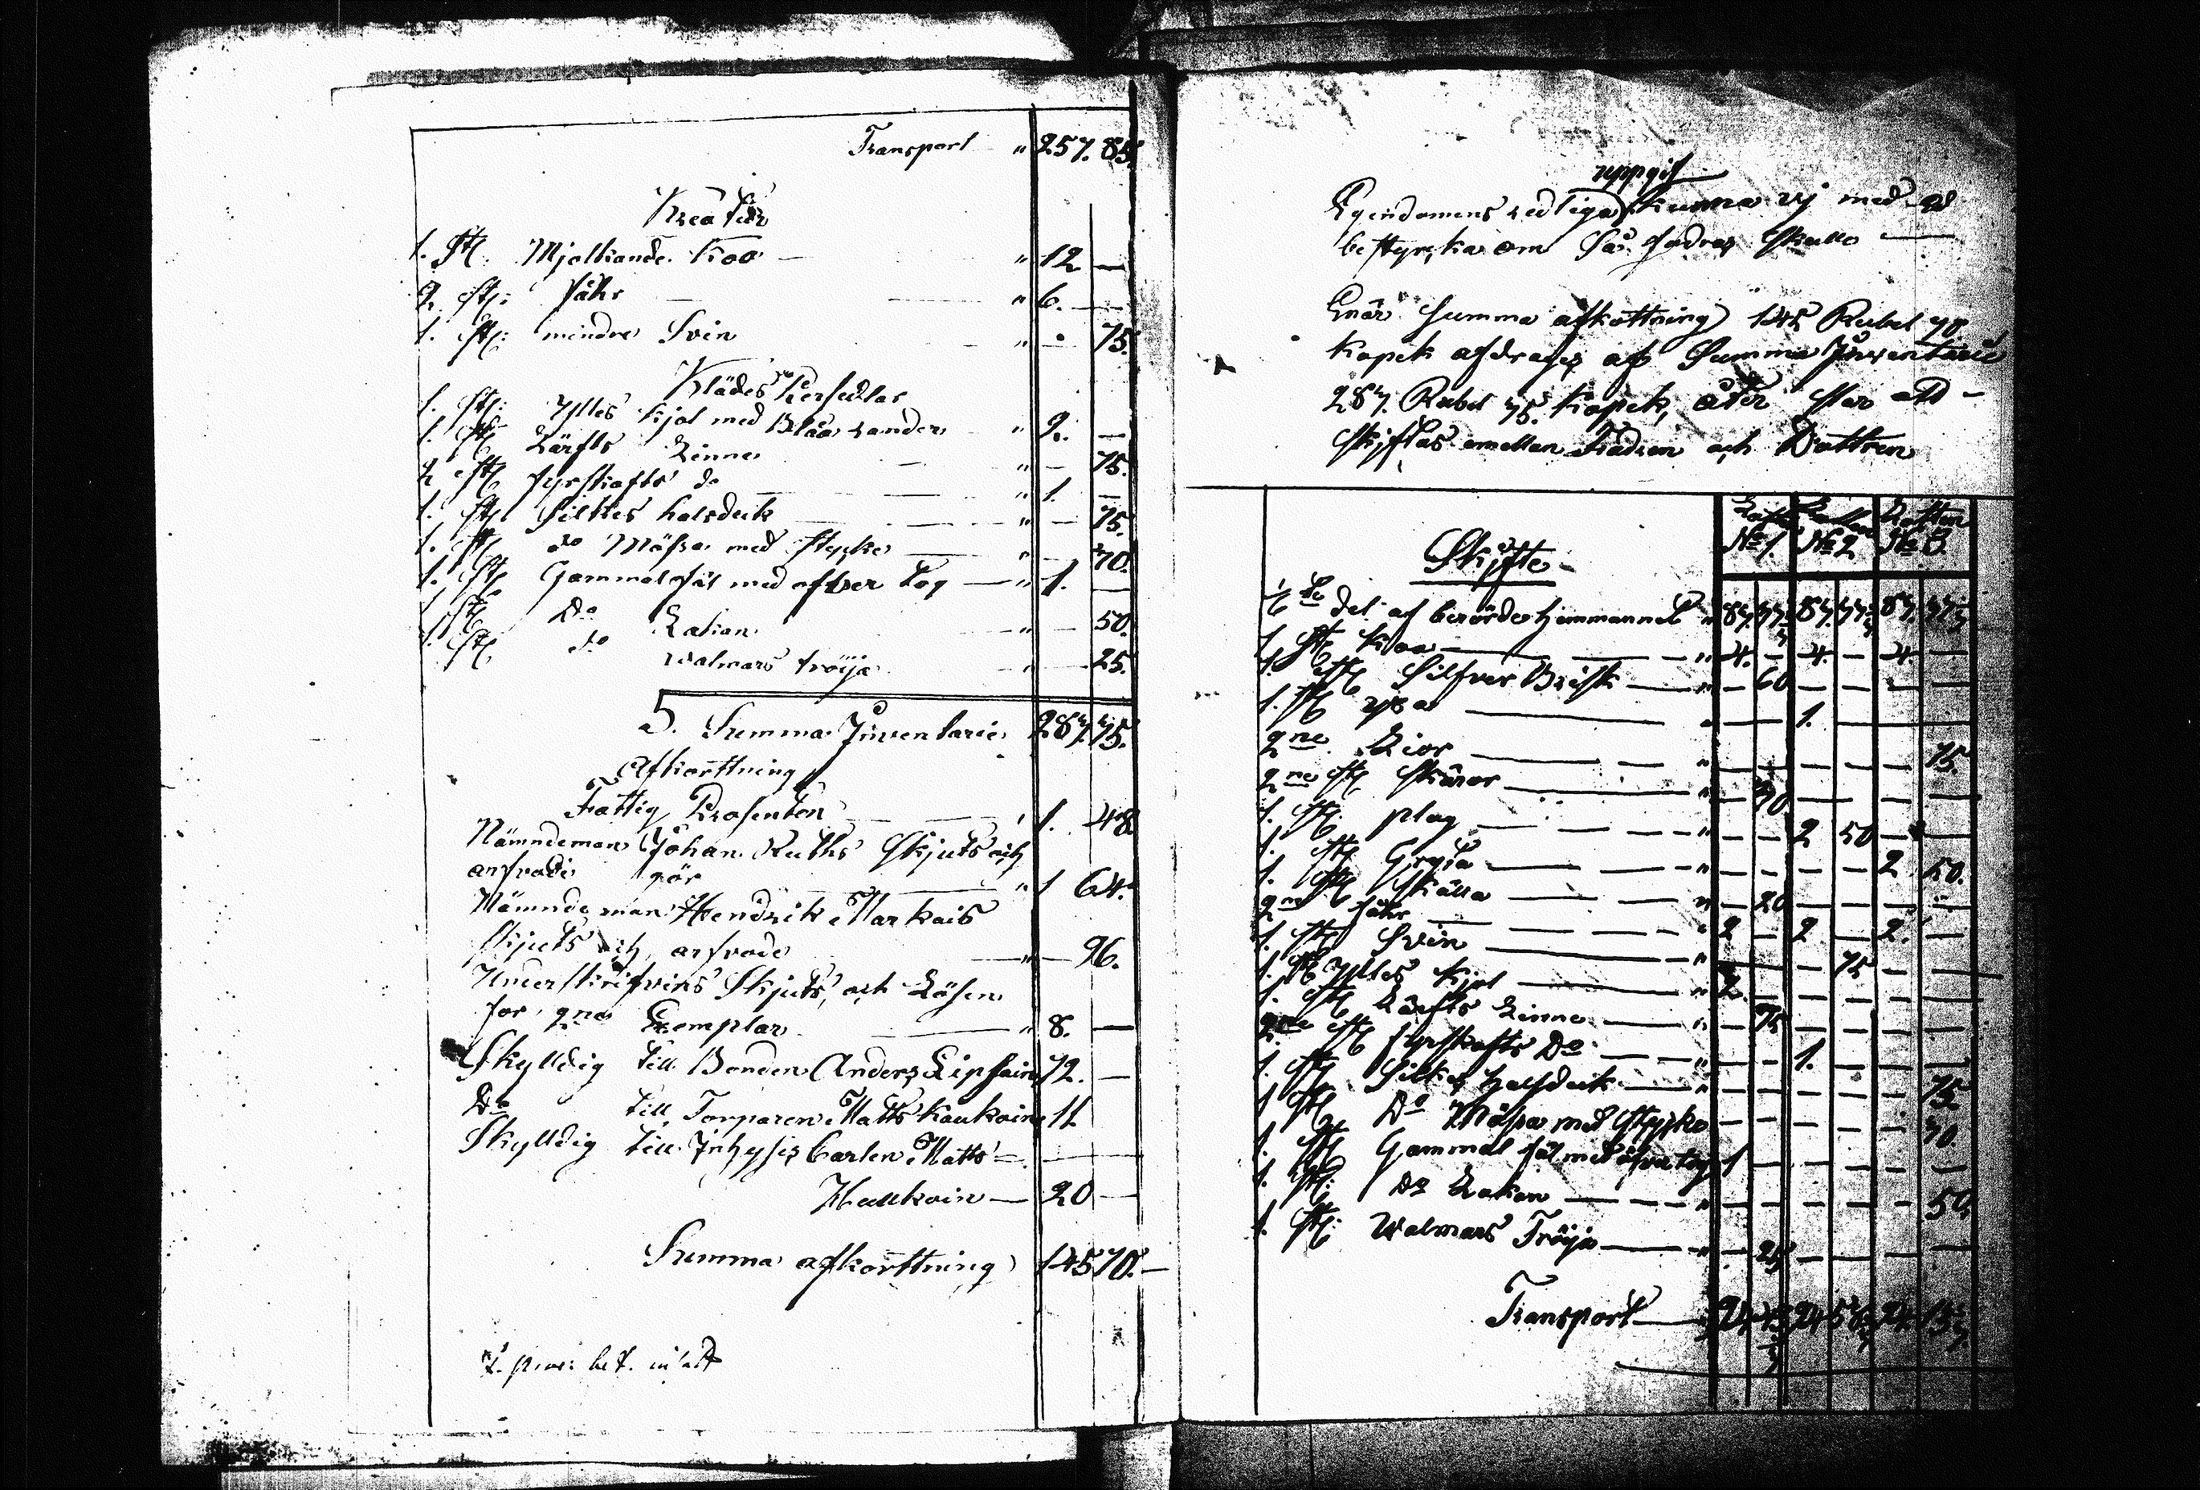 Transport " 257. 85.
Kreatur
1. St: Mjolkande Koo — " 12 —
2. St: fåhr — " 6. —
1. St: mindre Svin " — 75.
Klädes Persedlar
1. St: Ylles Kjol med Blåa rander " 2. —
1. St Lärfts Linne — " — 75.
2 St fyrskafts do — " 1. —
1. St Silkes halsduk — " — 75.
1. St do Mössa med stycke — " — 70.
1. St Gammal fäl med ofver tog — " 1. —
1. St Do Lakan — " — 50.
1. St. do walmars tröija " — 25.
S. Summa Inventarie 287. 75.
Afkorttning
Fattig Prosenten 1. 48
Nämndeman Johan Ruths Skjuts och
arfvode gör " 1 64.
Nämndeman Hendrik Markais
skjuts och arfvode " — 96.
Underskrifvins Skjuts, och Lösen
for 2ne Exemplar — " 8. —
Skylldig till Bonden Anders 72. —
Do till Torparen Matts Kaukain 11
Skylldig till Inhysis Carlen Matts —
Haukain — 20 —
Summa afkorttning 145 70. —
uppgif
Egendomens redliga kunna vj med ed
bestyrcka om så fodras skulle —
Enär Summa afkottning 145 Rubel 70
Kopek afdrages af Summa Inventarie
287. Rubel 75. Kopek, åter står att —
skiftas emellan Fadren och Dottren
Skifte
No 1. No 2 Dottren No 3.
del af berörde hemmannet " 87. 87. 87.
1. St Koo — " 4. — 4. — 4. —
1. St Silfver Brisk — " — 60 — — — —
1. St yxa — " — — 1. —
2ne Lior — " — — — — — 75.
2ne St skäror — " — 70. — — — —
1. St. plog — " — — 2 50 — —
1. St Gryta — " — — — — 2 50.
1. St skålla — " — 20 — — — —
2ne fåhr — " 2 — 2 — 2. —
1. St Svin — " — — — 75 — —
1. St Ylles Kjol — " 2 — — — — —
1. St Lärfts Linne — " — 75 — — — —
2ne St fyrskafts Do — " — — 1. — — —
1. St Silkes halsduk — " — — — — — 75
1 St Do Mössa med stycke — — — — — 70
1. St Gammal fäl med ofver tog 1 — — — — —
1. St: Do Lakan — " — — — — — 50.
1. St: Walmars Tröija — " — 25 — — — —
Transport —